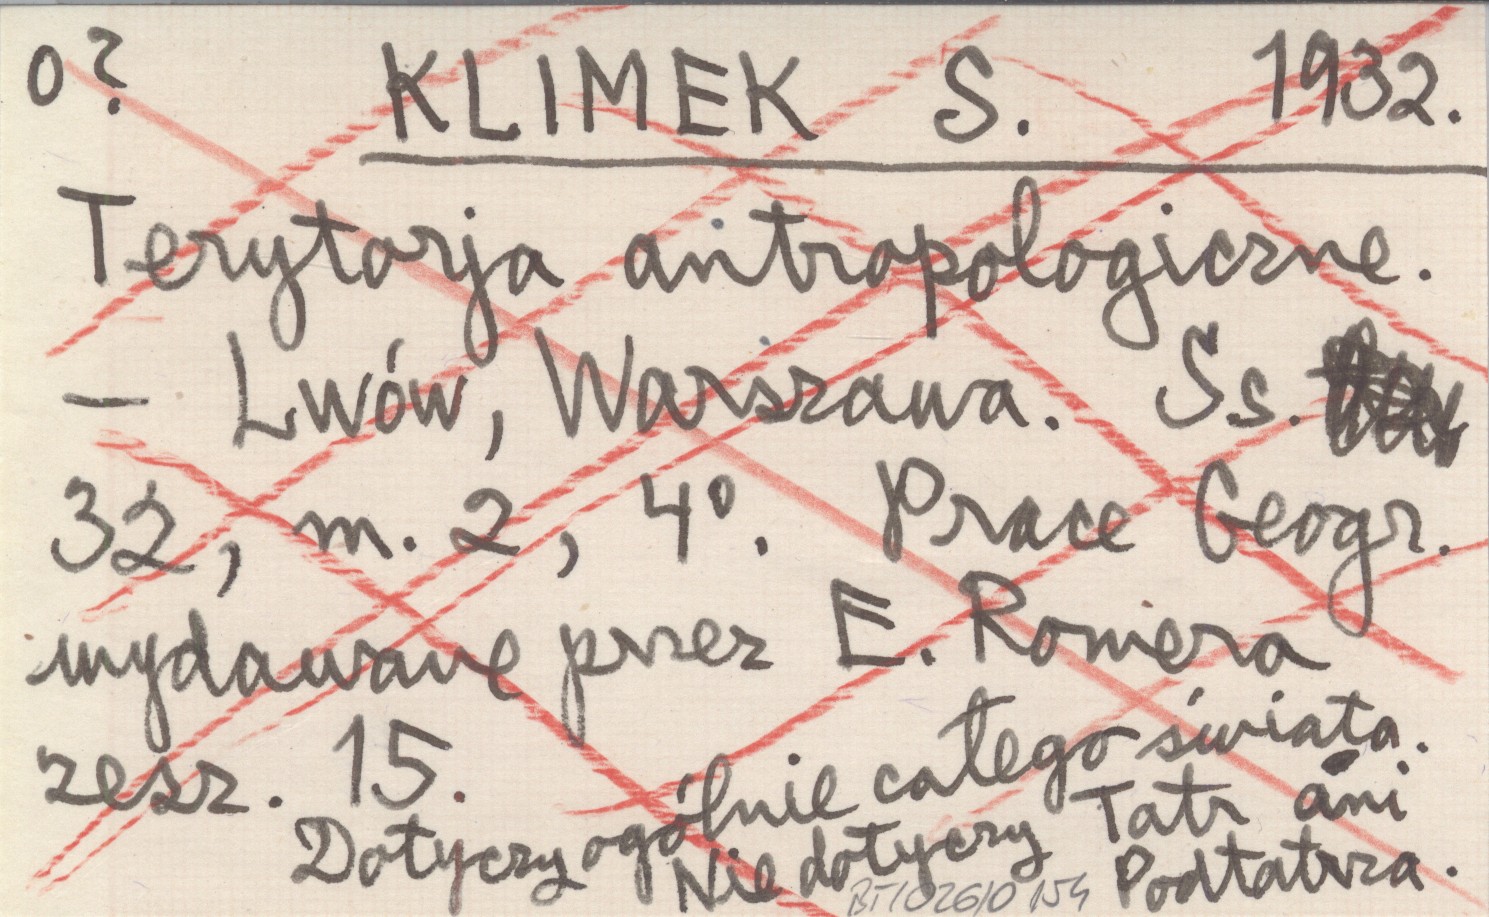 o? KLIMEK S. 1932.
Terytorja antropologiczne.
— Lwów, Warszawa. Ss.
32, m. 2, 4°. Prace Geogr.
wydawane przez E. Romera
zesz. 15.
Dotyczy ogólnie całego świata.
Nie dotyczy Tatr ani
Podtatrza.